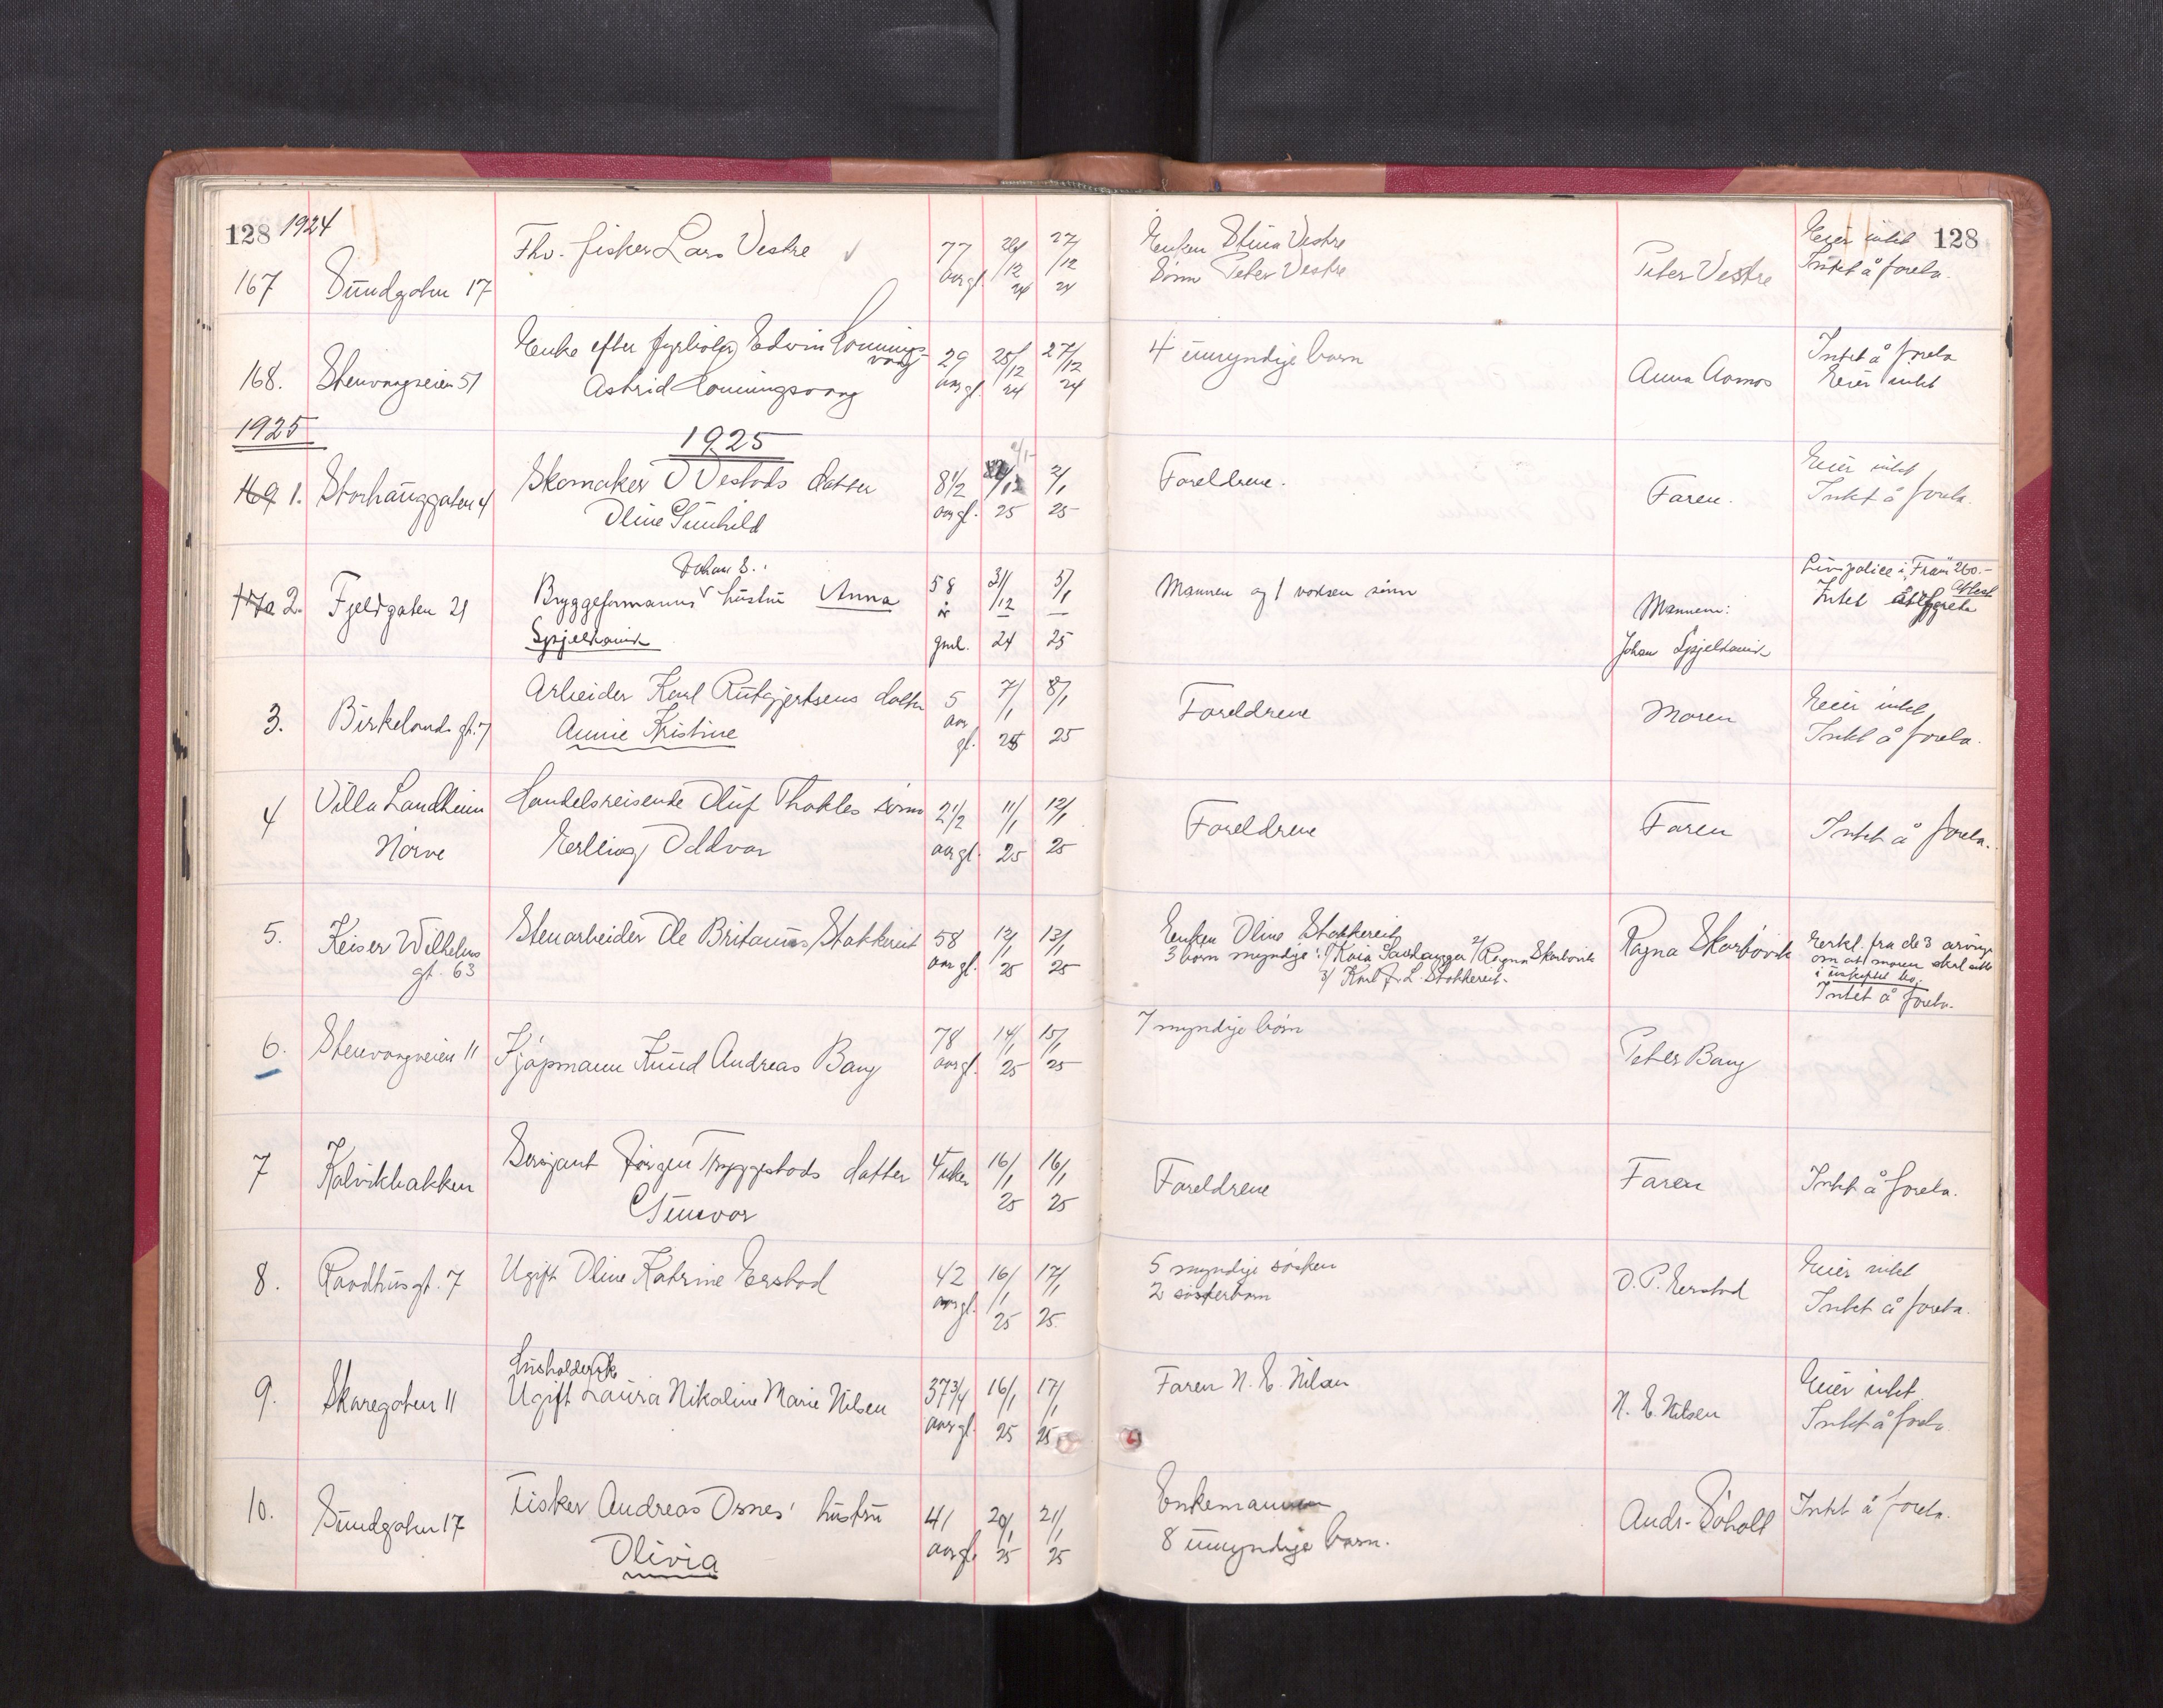 128 1924
128
167 Sundgaten 17
Thv. fisker Lars Vestre
77 aar gl. 26/12 24 27/12 24
Enken Stina Vestre
Sønn Peter Vestre
Peter Vestre
Eier intet
Intet å foreta.
168. Stenvaagveien 51
Enke efter fyrbøter Edwin Honningsvaag
Astrid Honningsvaag
29 aar gl. 25/12 24 27/12 24
4 umyndige barn
Anna Aamos
Intet å foreta
Eier intet
1925
1925
169 1. Storhauggaten 4
Skomaker O Vestads datter
Oline Gunhild
8 1/2 aar gl. 25 2/1 25
Foreldrene.
Faren.
Eier intet
Intet å foreta.
170 2. Fjeldgaten 21
Johan E.
Bryggeformanns hustru Anna
Spjelkavik
58 år gml. 31/12 24 5/1 25
Mannen og 1 voksen sønn
Mannen:
Johan Spjelkavik
Livspolice i "Fram" 260.-
Attest
Intet
3. Birkelands gt. 7
Arbeider Karl Rutgjertsens datter
Annie Kristine
5 aar gl. 7/1 25 8/1 25
Foreldrene
Moren
Eier intet
Intet å foreta.
4 Villa Landheim
Nørve
Handelsreisende Oluf Thokles sønn
Erling Oddvar
2 1/2 aar gl. 11/1 25 12/1 25
Foreldrene
Faren
Intet å foreta.
5. Keiser Wilhelms
gt. 63
Stenarbeider Ole Britanus Stokkereit
58 aar gl. 12/1 25 13/1 25
Enken Oline Stokkereit
3 barn myndige: 1/ Kaia 2/ Ragna Skarbøvik
3/ Karl J. L. Stokkereit.
Ragna Skarbøvik
Erkl. fra de 3 arvinger
om at moren skal sitte
i uskiftet bo.
Intet å foreta.
6. Stenvaagveien 11
Kjøpmann Knud Andreas Bang
78 aar gl. 14/1 25 15/1 25
7 myndige børn
Peter Bang
7 Kalvikbakken
Sersjant Jørgen Tryggestads datter
Gunvor
4 uker 16/1 25 16/1 25
Foreldrene
Faren
Intet å foreta.
8. Raadhusgt. 7
Ugift Oline Katrine Erstad
42 aar gl. 16/1 25 17/1 25
5 myndige søsken
2 søsterbarn
O. P. Erstad
Eier intet
Intet å foreta.
9. Skaregaten 11
Husholderske
Ugift Laura Nikoline Marie Nilsen
37 3/4 aar gl. 16/1 25 17/1 25
Faren N. E. Nilsen
N. E. Nilsen
Eier intet
Intet å foreta
10. Sundgaten 17
Fisker Andreas Osnes' hustru
Olivia
41 aar gl. 20/1 25 21/1 25
Enkemannen
8 umyndige barn.
Andr. Søholt
Intet å foreta.